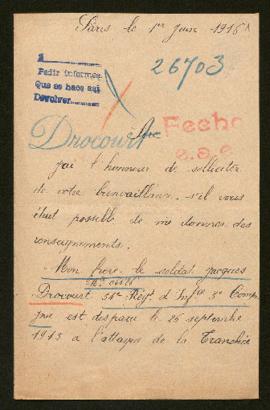 Paris le 1er Juin 1916
1
Pedir informes
Que se hace aqui
Devolver
26703
Drocourt
Fecho
j'ai l'honneur de solliciter
de votre bienveillance, s'il vous
était possible de me donner des
renseignements.
Mon frère le soldat jacques
Drocourt Régt d'Infie 3e Comp
que est disparu le 26 septembre
1915 a l'attaque de la Tranchée